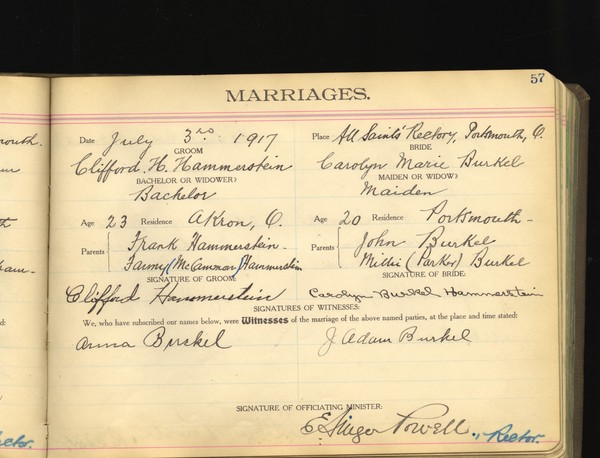 57
MARRIAGES.
Date July 3rd 1917 Place All Saints' Rectory, Portsmouth, O.
GROOM BRIDE
Clifford H. Hammerstein Carolyn Marie Burkel
BACHELOR OR WIDOWER) MAIDEN OR WIDOW)
Bachelor Maiden
Age 23 Residence Akron, O. Age 20 Residence Portsmouth -
Parents Frank Hammerstein - Parents John Burkel
Fanny (McCammon) Hammerstein Millie (Parker) Burkel
SIGNATURE OF GROOM: SIGNATURE OF BRIDE:
Clifford Hammerstein Carolyn Burkel Hammerstein
SIGNATURES OF WITNESSES:
We, who have subscribed our names below, were Witnesses of the marriage of the above named parties, at the place and time stated:
Anna Burkel J Adam Burkel
SIGNATURE OF OFFICIATING MINISTER:
Powell, Rector.